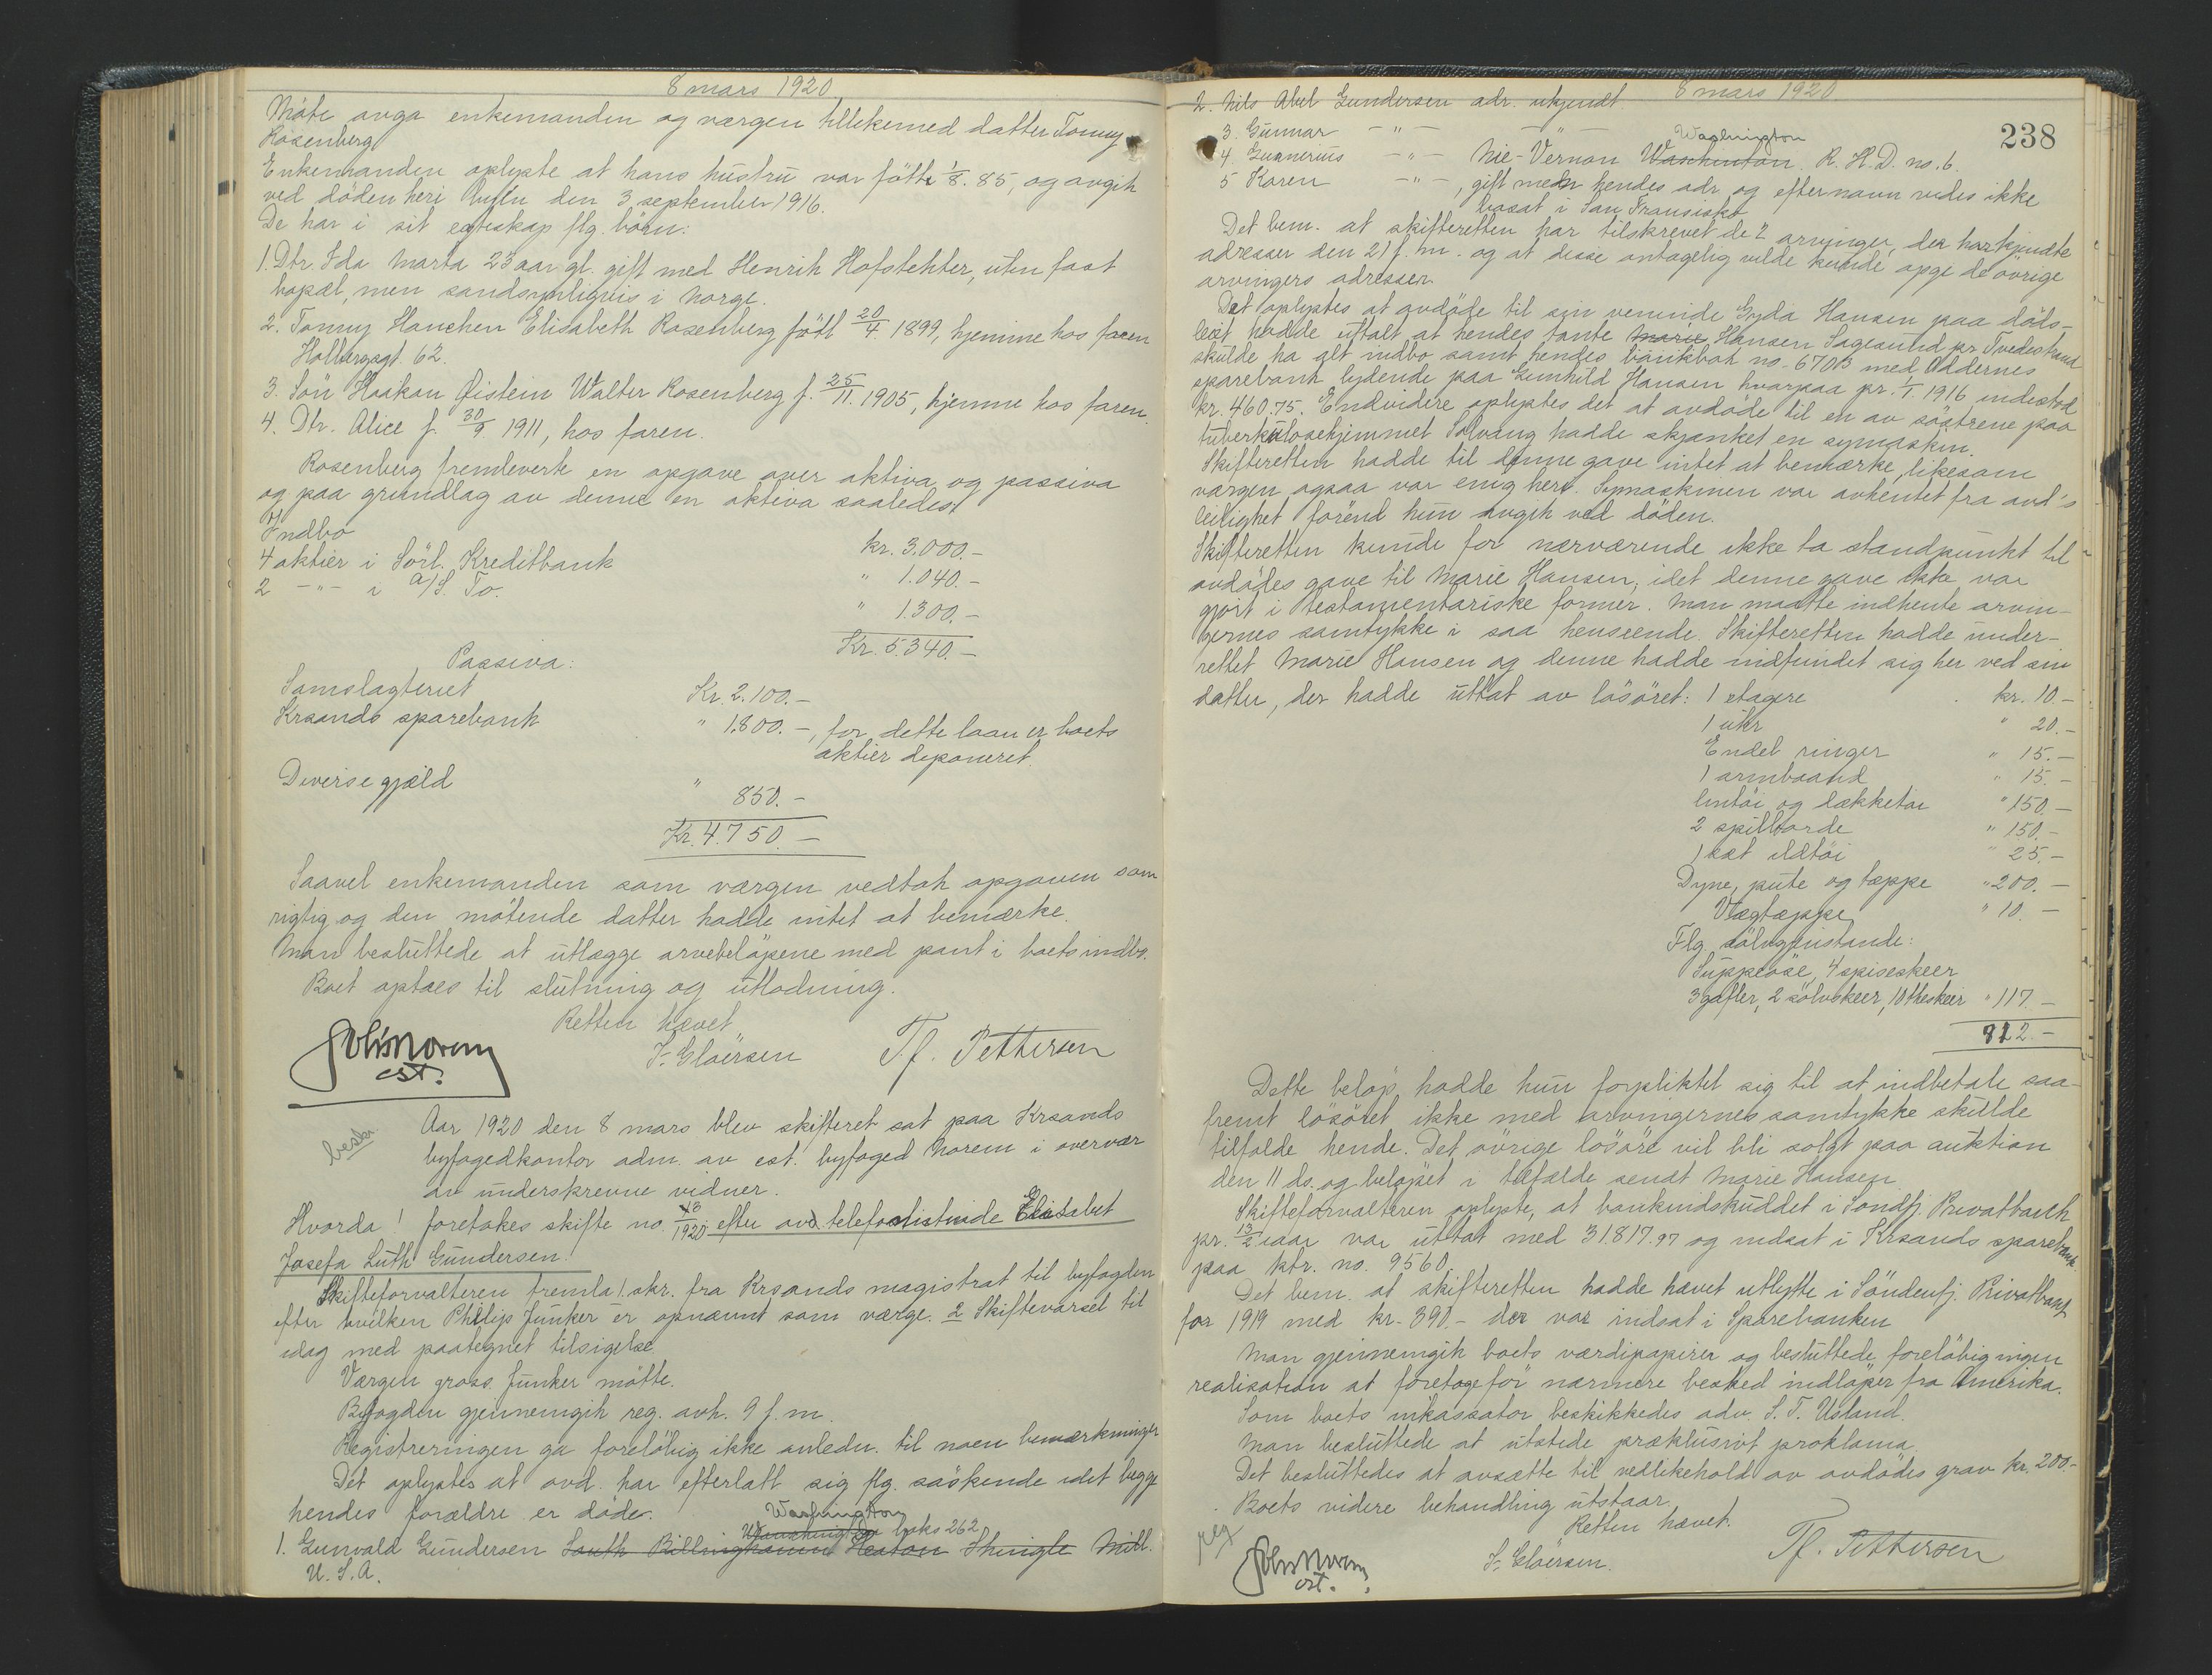 8 mars 1920.
Möte avga enkemanden og værgen tillikemed datter Tonny
Rosenberg
Enkemanden oplyste at hans hustru var född 1/8. 85, og avgik
ved döden her i byen den 3 september 1916.
De har i sit egteskap flg. börn:
1. Dtr. Ida Marta 23 aar gl. gift med Henrik Hofstehter, uten fast
bopæl, men sandsynligvis i Norge.
2. Tonny Hanchen Elisabeth Rosenberg född 20/4. 1899, hjemme hos faren
Holbergsgt. 62.
3. Sön Haakon Øistein Walter Rosenberg f. 25/11. 1905, hjemme hos faren.
4. Dtr. Alice f. 30/9 1911, hos faren.
Rosenberg fremleverte en opgave over aktiva og passiva
og paa grundlag av denne en aktiva saaledes:
Indbo kr. 3.000.-
4 aktier i Sörl. Kreditbank " 1.040.-
2 -"- i A/S. To. " 1.300.-
Kr. 5.340.-
Passiva:
Samslagteriet Kr. 2.100.-
Krsands sparebank " 1.800.-, for dette laan er boets
aktier deponeret.
Diverse gjæld " 850.-
Kr. 4.750.-
Saavel enkemanden som værgen vedtok opgaven som
rigtig og den mötende datter hadde intet at bemærke.
Man besluttede at utlægge arvebelöpene med pant i boets indbo.
Boet optaes til slutning og utlodning.
Retten hævet
John Norem
cst.
S. Gloërsen Tf. Pettersen
besk.
Aar 1920 den 8 mars blev skifteret sat paa Krsands
byfogedkontor adm. av cst. byfoged Norem i overvær
av underskrevne vidner.
Hvorda! foretokes skifte no. 13/1920 efter avd. telefonistinde Elisabet
Josefa Luth Gundersen.
Skifteforvalteren fremla 1. skr. fra Krsands magistrat til byfogden
efter hvilken Philip Junker er opnævnt som værge. 2 Skiftevarsel til
idag med paategnet tilsigelse.
Værgen gross. Junker mötte.
Byfogden gjennemgik reg. avh. 9 f. m.
Registreringen ga forelöbig ikke anledn. til noen bemærkninger
Det oplystes at avd. har efterlatt sig flg. söskende idet begge
hendes forældre er döde.
Washington
boks 262
1. Gunvald Gundersen South Billingham Heaton Shingle Mill.
U. S. A.
8 mars 1920.
238
2. Nils Abel Gundersen adr. ukjendt
3. Gunnar -"- -"-
Washington
4. Gunerius -"- Nie-Vernon Waschinton R. H. D. no. 6
5 Karen -"-, gift men hendes adr og efternavn vides ikke
bosat i San Fransisko
Det bem. at skifteretten har tilskrevet de 2 arvinger, der har kjendte
adresser den 21 f. m. og at disse antagelig vilde kunde opge de övrige
arvingers adresser.
Det oplystes at avdöde til sin veninde Gyda Hansen paa döds-
leiet hadde uttalt at hendes tante Marie Hansen Sagesund pr Tvedestrand
skulde ha alt indbo samt hendes bankbok no. 6703 med Oddernes
sparebank lydende paa Gunhild Hansen hvorpaa pr. 1/1 1916 indestod
kr. 460.75. Endvidere oplystes det at avdöde til en av söstrene paa
tuberkulosehjemmet Solvang hadde skjænket en symaskin.
Skifteretten hadde til denne gave intet at bemærke, likesom
værgen ogsaa var enig heri. Symaskinen var avhentet fra avd's
leilighet förend hun avgik ved döden.
Skifteretten kunde for nærværende ikke ta standpunkt til
avdödes gave til Marie Hansen, idet denne gave ikke var
gjort i testamentariske former. Man maatte indhente arvin-
gernes samtykke i saa henseende. Skifteretten hadde under-
rettet Marie Hansen og denne hadde indfundet sig her ved sin
datter, der hadde uttat av lösöret: 1 etagere kr. 10.-
1 ukr " 20.-
Endel ringer " 15.-
1 armbaand " 15.-
lintöi og dækketöi " 150.-
2 spillborde " 150.-
1 sæt ildtöi " 25.-
Dyne, pute og tæppe " 200.-
Vægtæppe " 10.-
Flg. sölvgjenstande:
Suppeöse, 4 spiseskeer
3 gafler, 2 sölvskeer, 10 theskeer " 117.-
812.-
Dette belöp hadde hun forpliktet sig til at indbetale saa-
fremt lösöret ikke med arvingernes samtykke skulde
tilfalde hende. Det övrige lösöre vil bli solgt paa auktion
den 11 ds. og belöpet i tilfælde sendt Marie Hansen.
Skifteforvalteren oplyste, at bankindskuddet i Söndfj. Privatbank
pr. 13/2 iaar var uttat med 31.817.97 og indsat i Krsands sparebank
paa ktr. no. 9560.
Det bem. at skifteretten hadde hævet utbytte i Söndenfj. Privatbank
for 1919 med kr. 390.- der var indsat i Sparebanken
Man gjennemgik boets værdipapirer og besluttede forelöbig ingen
realisation at foretage för nærmere besked indlöper fra Amerika.
Som boets inkassator beskikkedes adv. S. T. Usland.
Man besluttede at utstede præklusivt proklama.
Det besluttedes at avsætte til vedlikehold av avdödes grav kr. 200.-
Boets videre behandling utstaar.
Retten hævet.
reg
John Norem
cst.
S. Gloërsen. Tf. Pettersen